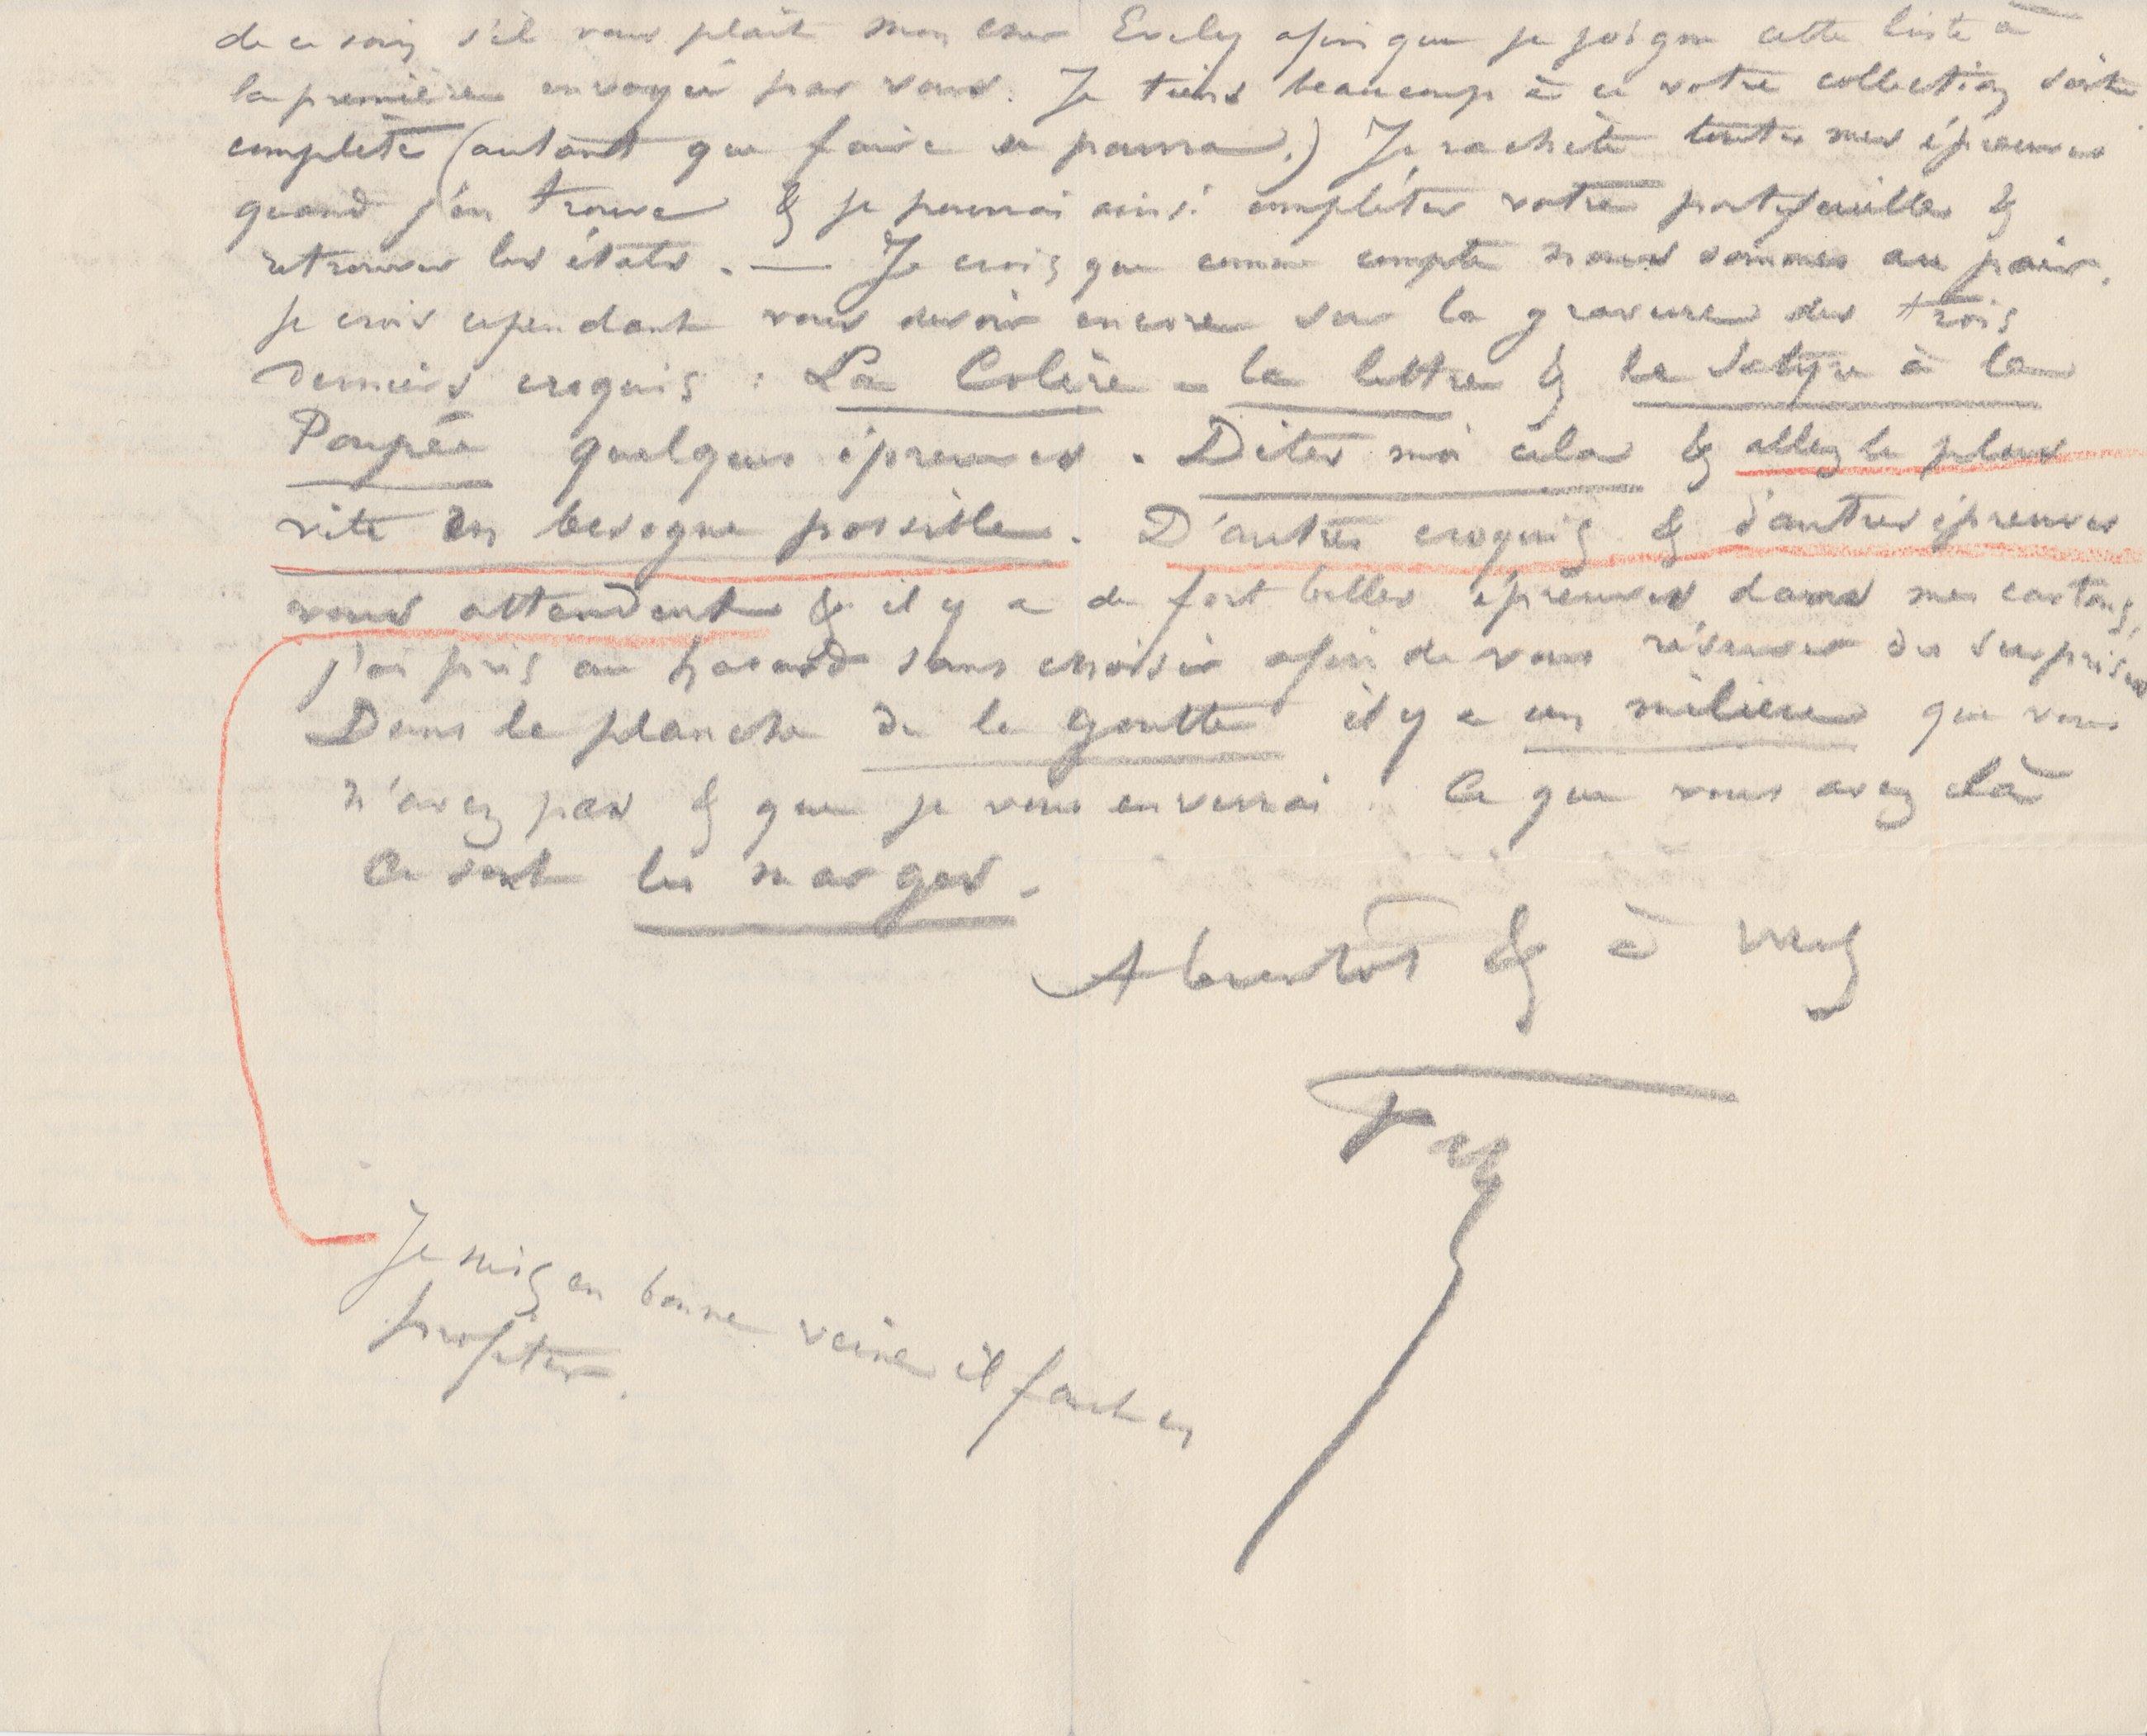 de ce soin s'il vous plait mon cher Evely afin que je joigne cette liste à
la première envoyée par vous. Je tiens beaucoup à ce votre collection soit
complète (autant que faire se pourra.) Je rachète toutes mes épreuves
quand j'en trouve & je pourrai ainsi compléter votre portefeuille &
retrouver les états. — Je crois que comme compte nous sommes au pair.
Je crois cependant vous devoir encore sur la gravure des trois
derniers croquis : La Colère – la lettre & le Satyre à la
Poupée quelques épreuves. Dites moi cela & allez le plus
vite en besogne possible. D'autres croquis & d'autres épreuves
vous attendent & il y a de fort belles épreuves dans mes cartons,
j'ai pris au hasard sans choisir afin de vous réserver des surprises
Dans la planche de la goutte il y a un milieu que vous
n'avez pas & que je vous enverrai. Ce que vous avez là
Ce sont les marges.
A bientôt & à vous
Je suis en bonne veine il faut en
profiter.